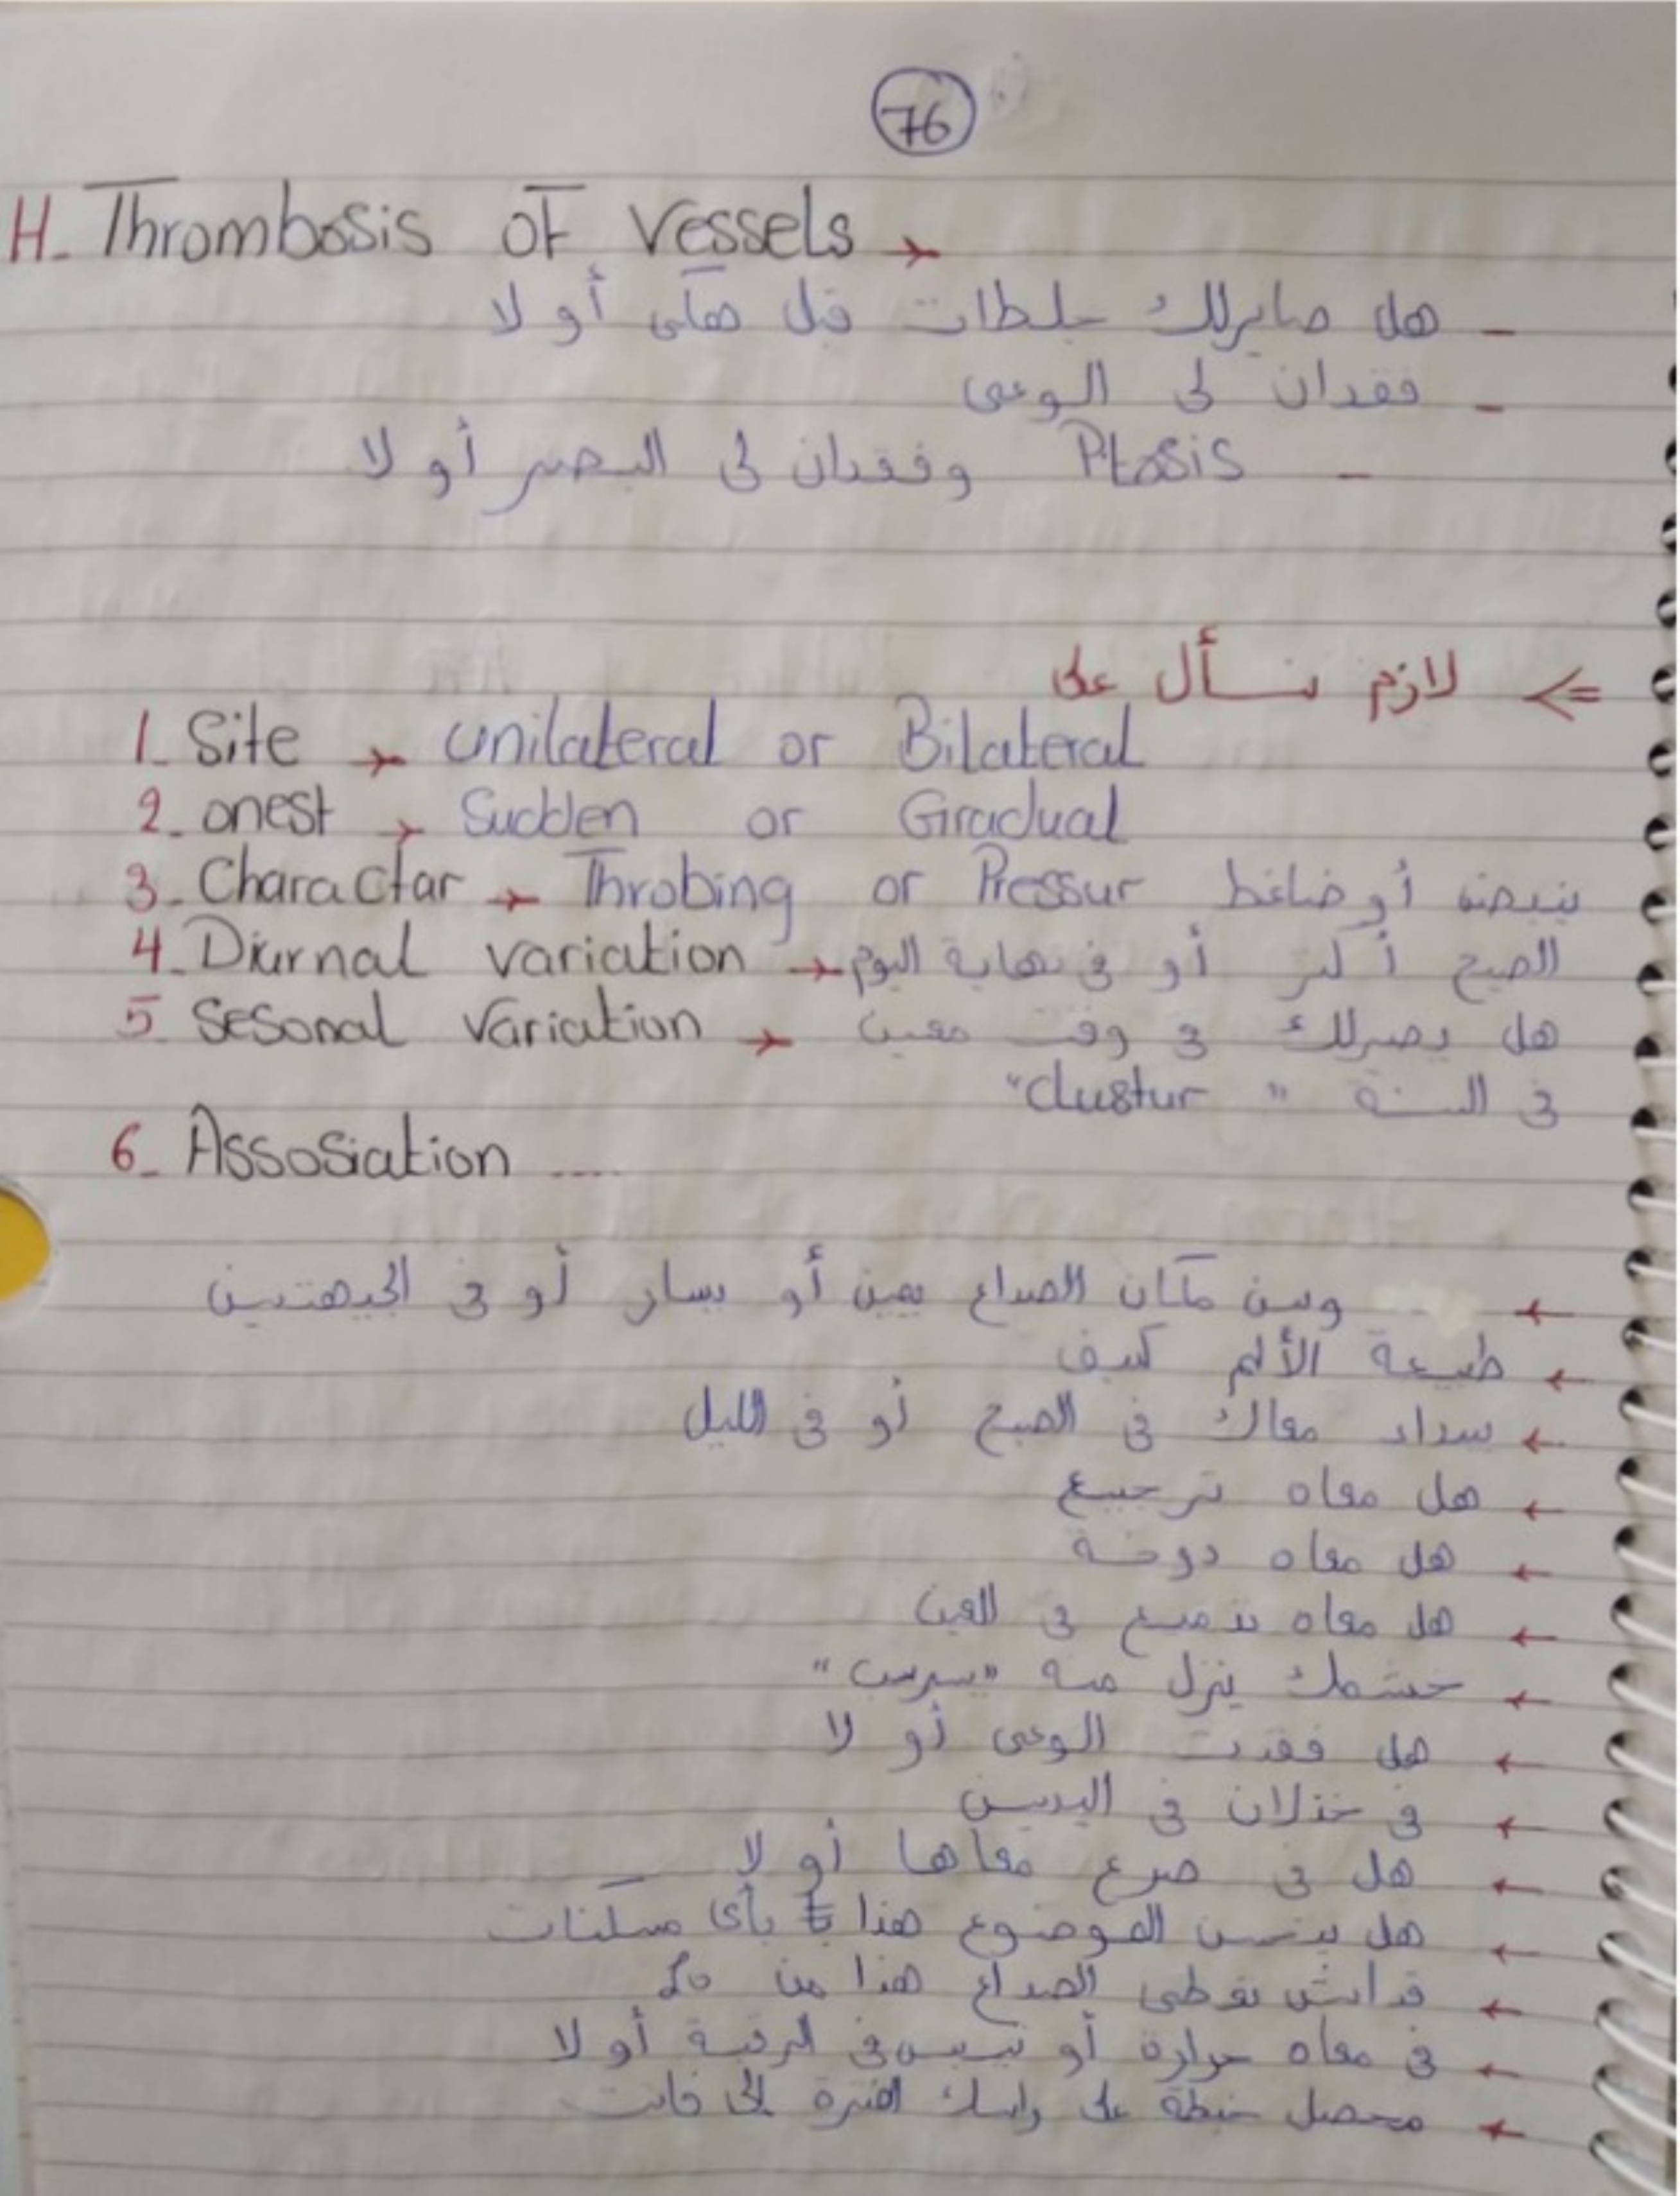 76
H- Thrombosis of Vessels →
- هل صايرلك جلطات قبل هكى أو لا
- فقدان لى الوعى
- Ptosis وفقدان لى البصر أو لا
⇐ لازم نسأل على
1- Site → unilateral or Bilateral
2- onest → Sudden or Gradual
3- Charactar → Throbing or Pressur ينبض أو ضاغط
4- Diurnal variation → الصبح أكتر أو فى نهاية اليوم
5- Sesonal Variation → هل يصيرلك فى وقت معين
فى السنة "clustur"
6- Assosiation ....
← وين مكان الصداع يمين أو يسار أو فى الجيهتين
← طبيعة الألم كيف
← يبدا معاك فى الصبح أو فى الليل
← هل معاه ترجيع
← هل معاه دوخة
← هل معاه تدميع فى العين
← خشمك ينزل منه "سريب"
← هل فقدت الوعى أو لا
← فى خذلان فى اليدين
← هل فى صرع معاها أو لا
← هل يتحسن الموضوع هذا بأى مسكنات
← قداش تعطى الصداع هذا من 10
← فى معاه حرارة أو تيبس فى الرقبة أو لا
← محصل خبطة على راسك الفترة إلى فاتت